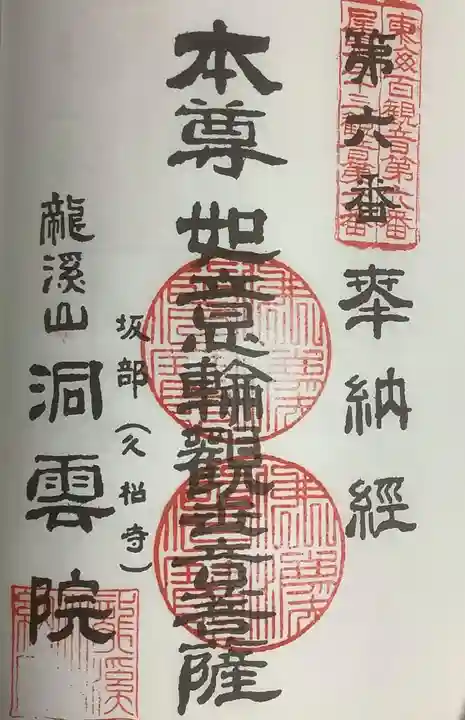 東海百観音第六番
尾張三十三観音第六番
第六番
奉納經
本尊如意輪觀世音菩薩
坂部(久松寺)
龍溪山洞雲院